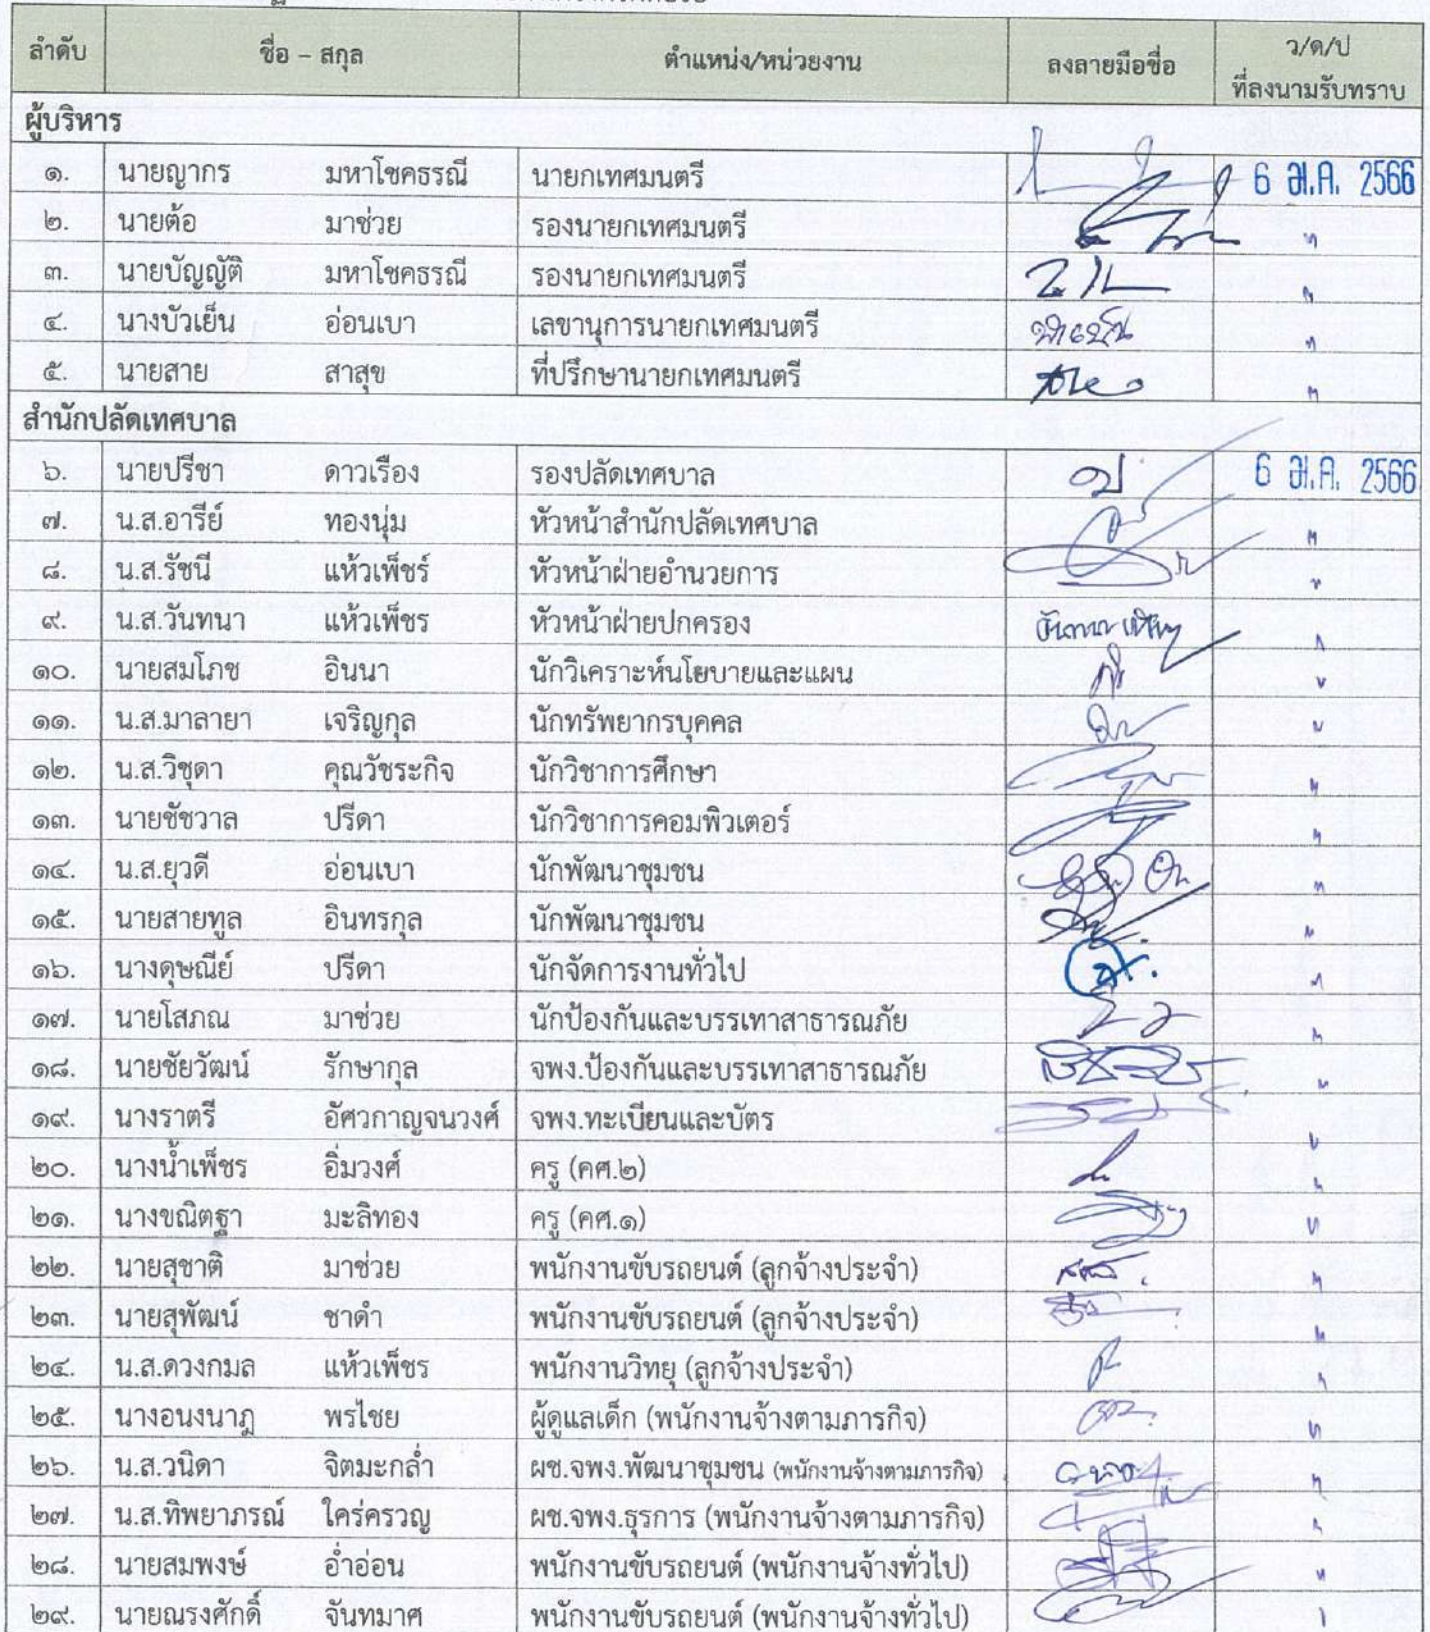 ลำดับ ชื่อ – สกุล ตำแหน่ง/หน่วยงาน ลงลายมือชื่อ ว/ด/ป
ที่ลงนามรับทราบ
ผู้บริหาร
๑. นายญากร มหาโชคธรณี นายกเทศมนตรี 6 ม.ค. 2566
๒. นายต้อ มาช่วย รองนายกเทศมนตรี "
๓. นายบัญญัติ มหาโชคธรณี รองนายกเทศมนตรี "
๔. นางบัวเย็น อ่อนเบา เลขานุการนายกเทศมนตรี "
๕. นายสาย สาสุข ที่ปรึกษานายกเทศมนตรี "
สำนักปลัดเทศบาล
๖. นายปรีชา ดาวเรือง รองปลัดเทศบาล 6 ม.ค. 2566
๗. น.ส.อารีย์ ทองนุ่ม หัวหน้าสำนักปลัดเทศบาล "
๘. น.ส.รัชนี แห้วเพ็ชร์ หัวหน้าฝ่ายอำนวยการ "
๙. น.ส.วันทนา แห้วเพ็ชร หัวหน้าฝ่ายปกครอง "
๑๐. นายสมโภช อินนา นักวิเคราะห์นโยบายและแผน "
๑๑. น.ส.มาลายา เจริญกุล นักทรัพยากรบุคคล "
๑๒. น.ส.วิชุดา คุณวัชระกิจ นักวิชาการศึกษา "
๑๓. นายชัชวาล ปรีดา นักวิชาการคอมพิวเตอร์ "
๑๔. น.ส.ยุวดี อ่อนเบา นักพัฒนาชุมชน "
๑๕. นายสายทูล อินทรกุล นักพัฒนาชุมชน "
๑๖. นางดุษณีย์ ปรีดา นักจัดการงานทั่วไป "
๑๗. นายโสภณ มาช่วย นักป้องกันและบรรเทาสาธารณภัย "
๑๘. นายชัยวัฒน์ รักษากุล จพง.ป้องกันและบรรเทาสาธารณภัย "
๑๙. นางราตรี อัศวกาญจนวงศ์ จพง.ทะเบียนและบัตร "
๒๐. นางน้ำเพ็ชร อิ่มวงศ์ ครู (คศ.๒) "
๒๑. นางขณิตฐา มะลิทอง ครู (คศ.๑) "
๒๒. นายสุชาติ มาช่วย พนักงานขับรถยนต์ (ลูกจ้างประจำ) "
๒๓. นายสุพัฒน์ ชาดำ พนักงานขับรถยนต์ (ลูกจ้างประจำ) "
๒๔. น.ส.ดวงกมล แห้วเพ็ชร พนักงานวิทยุ (ลูกจ้างประจำ) "
๒๕. นางอนงนาฎ พรไชย ผู้ดูแลเด็ก (พนักงานจ้างตามภารกิจ) "
๒๖. น.ส.วนิดา จิตมะกล่ำ ผช.จพง.พัฒนาชุมชน (พนักงานจ้างตามภารกิจ) "
๒๗. น.ส.ทิพยาภรณ์ ใคร่ครวญ ผช.จพง.ธุรการ (พนักงานจ้างตามภารกิจ) "
๒๘. นายสมพงษ์ อ่ำอ่อน พนักงานขับรถยนต์ (พนักงานจ้างทั่วไป) "
๒๙. นายณรงศักดิ์ จันทมาศ พนักงานขับรถยนต์ (พนักงานจ้างทั่วไป) "